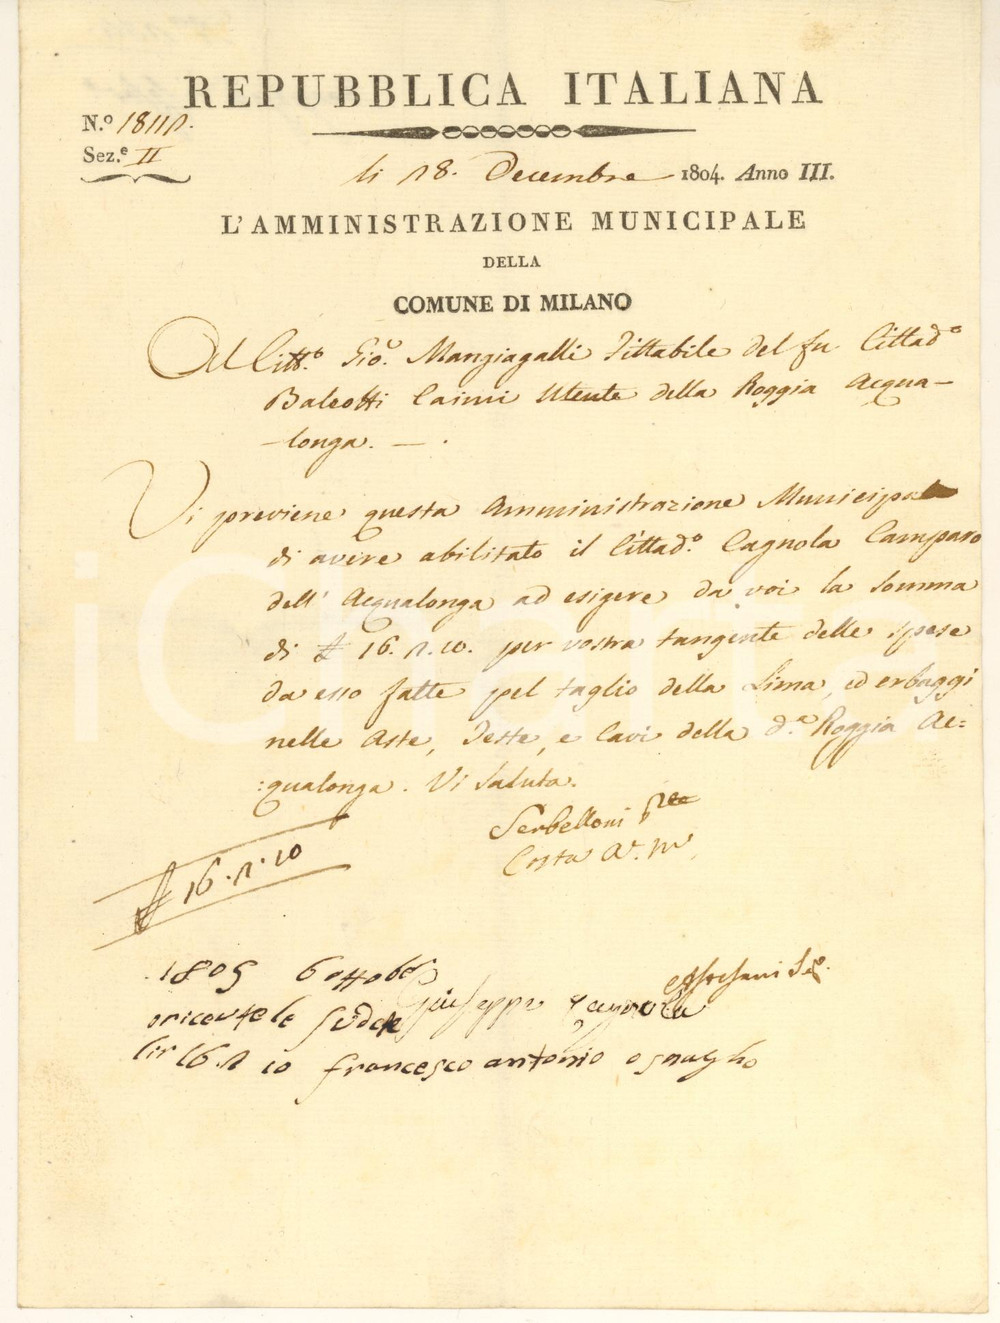 REPUBBLICA ITALIANA
N.º 18111.
Sez.e II
li 18. Decembre 1804. Anno III.
L'AMMINISTRAZIONE MUNICIPALE
DELLA
COMUNE DI MILANO
Al Citt.º Gio.º Mangiagalli Fittabile del fu Cittadº
Balcotti Caimi Utente della Roggia Acqua-
-longa. — .
Vi previene questa Amministrazione Municipale
di avere abilitato il Cittad.º Cagnola Camparo
dell' Acqualonga ad esigere da voi la somma
di £ 16. 1. 10. per vostra tangente delle spese
da esso fatte pel taglio della Lima, ed erbaggi
nelle Aste, Teste, e Cavi della d.a Roggia Ac:
:qualonga. Vi saluta.
Serbelloni
Costa A. M.
£ 16. 1. 10
1805 6 ottobre
o riceuto le sudete Giuseppe Cagnola
lir 16 1 10 francesco antonio osnagho
iCharta